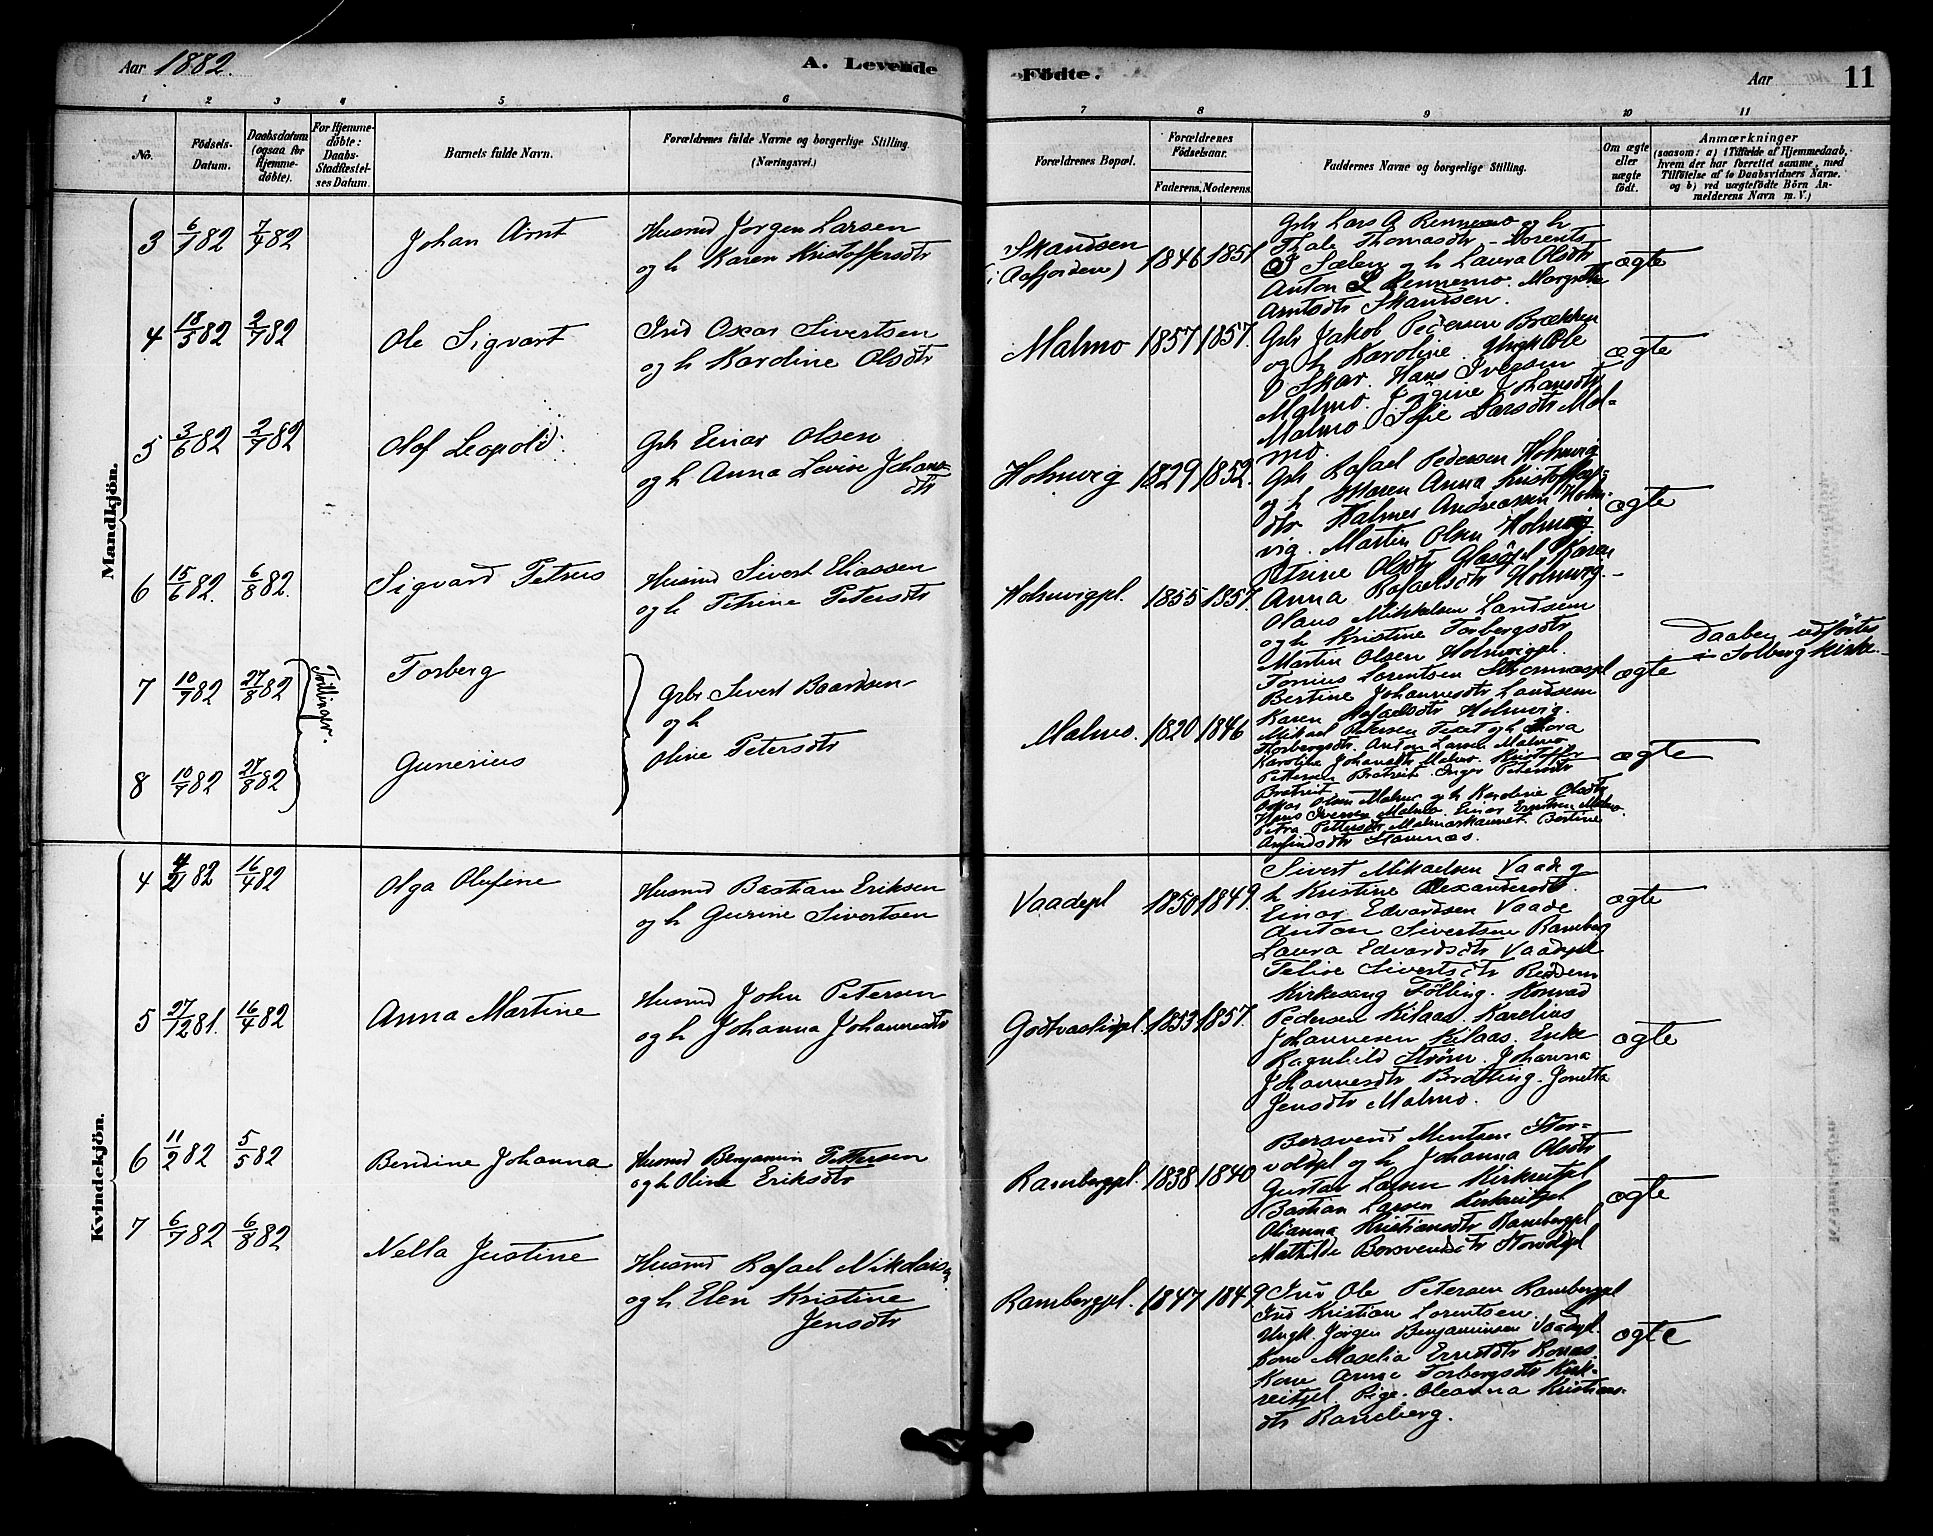 Aar 1882.
A. Levende
Födte.
Aar 11
1 2 3 4 5 6 7 8 9 10 11
No.
Födsels-
Datum.
Daabsdatum
(ogsaa for
Hjemme-
döbte).
For Hjemme-
döbte:
Daabs-
Stadfæstel-
ses Datum.
Barnets fulde Navn.
Forældrenes fulde Navne og borgerlige Stilling.
(Næringsvei.)
Forældrenes Bopæl.
Forældrenes
Födselsaar.
Faderens. Moderens.
Faddernes Navne og borgerlige Stilling.
Om ægte
eller
uægte
født.
Anmærkninger
(saasom: a) i Tilfælde af Hjemmedaab,
hvem der har forrettet samme, med
Tilföielse af to Daabsvidners Navne.
og b) ved uægtefödte Börn An-
melderens Navn m. V.)
Mandkjön.
3 6/1 82 7/4 82 Johan Arnt
Husmd Jörgen Larsen
og h Karen Kristoffersdtr
Skandsen
(i Aafjorden) 1846 1851
Gbr Lars A Rennemo og h
Thale Thomasdtr - Lorents
Sælen og h Laura Olsdtr
Anton L Rennemo. Margrethe
Arntsdtr Skandsen.
ægte
4 18/3 82 2/7 82 Ole Sigvart
Ind Oscar Sivertsen
og h Kardine Olsdtr
Malmo 1857 1857.
Gbr Jakob Pedersen Brækken
og h Karoline. Ungk Ole
O Skar. Hans Iversen
Malmo. Jörgine Johansdtr
Malmo Sofie Larsdtr Mal-
mo.
ægte
5 3/6 82 2/7 82 Olaf Leopold.
Gbr Einar Olsen
og h Anna Lovise Johans-
dtr
Holmvig 1829 1852.
Gbr Rafael Pedersen Holmvig
og h Maren Anna Kristoffers-
dtr Halmes Andreassen Holm-
vig. Martin Olsen Holmvig
Petrine Olsdtr Glasöpl Karen
Anna Rafaelsdtr Holmvig.
ægte
6 15/6 82. 6/8 82. Sigvard Petrus
Husmd Sivert Eliassen
og h Petrine Petersdtr
Holmvigpl. 1855 1857.
Olaus Mikkelsen Landsem
og h Kristine Torbergsdtr
Martin Olsen Holmvigpl.
Tonius Lorentsen
Bertine Johannesdtr Landsem
Karen Rafaelsdtr Holmvig.
ægte
Daaben udførtes
i Solberg kirke.
7 10/7 82 27/8 82 Trillinger. Torberg
8 10/7 82 27/8 82 Gunerius
Gbr Sivert Baardsen
og h
Oline Petersdtr
Malmo. 1820 1846
Mikael Petersen og h Nora
Thorbergsdtr. Anton Larsen Malmo
Karoline Johansdtr Malmo. Kristoffer
Pettersen Bratreit. Inger Petersdtr
Bratreit
Oskar Olsen Malmo og h Kardine Olsdtr
Hans Iversen Malmo. Einar Erntsen Malmo.
Petra Pettersdtr Malmoskaunet. Bertine
Arfindsdtr Stamnæs.
ægte
Kvindekjön.
4 4/2 82 16/4 82 Olga Olufine
Husmd Bastian Eriksen
og h Gurine Sivertsen
Vaadepl 1850 1849.
Sivert Mikaelsen Vaade og
h Kristine Alexandersdtr.
Einar Edvardsen Vaade
Anton Sivertsen Ramberg
Laura Edvardsdtr Vaadepl
Feline Sivertsdtr Reddem
ægte
5 27/12 81. 16/4 82 Anna Martine
Husmd John Petersen
og h Johanna Johannesdtr
Godtvaslidpl. 1853 1857.
Kirkesang Fölling. Konrad
Pedersen Kilaas. Karelius
Johannesen Kilaas. Enke
Ragnhild Ström. Johanna
Johannesdtr Bratting. Jonetta
Jensdtr Malmo.
ægte
6 11/2 82 5/5 82 Berdine Johanna
Husmd Benjamin Pettersen
og h Oline Eriksdtr
Rambergpl. 1838 1840
Bersvend Mentsen Stor-
voldpl og h Johanna Olsdtr
Gustav Larsen Kirkreitpl
Bastian Larsen Kirkreitpl
Olianna Kristiansdtr Rambergpl
Mathilde Bersvendsdtr Storvoldpl
ægte
7 6/7 82 6/8 82 Nella Justine
Husmd Rafael Nikolaisen
og h Elen Kristine
Jensdtr
Rambergpl. 1847 1849
Ind Ole Petersen Rambergpl
Ind Kristian Lorentsen.
Ungk. Jörgen Benjaminsen Vaadepl.
Kone Maselia Erntsdtr Ronas
Kone Anne Torbergsdtr Kirk-
reitpl. Pige. Oleanna Kristians-
dtr Ramberg.
ægte